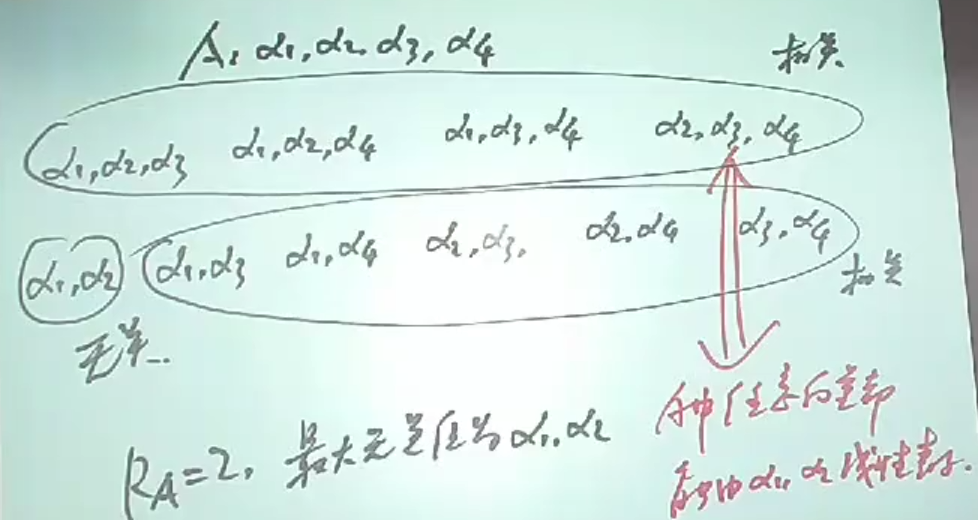 A: α1, α2, α3, α4
相关
α1, α2, α3 α1, α2, α4 α1, α3, α4 α2, α3, α4
α1, α2 α1, α3 α1, α4 α2, α3, α2, α4 α3, α4
相关
无关
RA=2, 最大无关组为α1, α2
A中任意向量都
能由α1, α2线性表示.